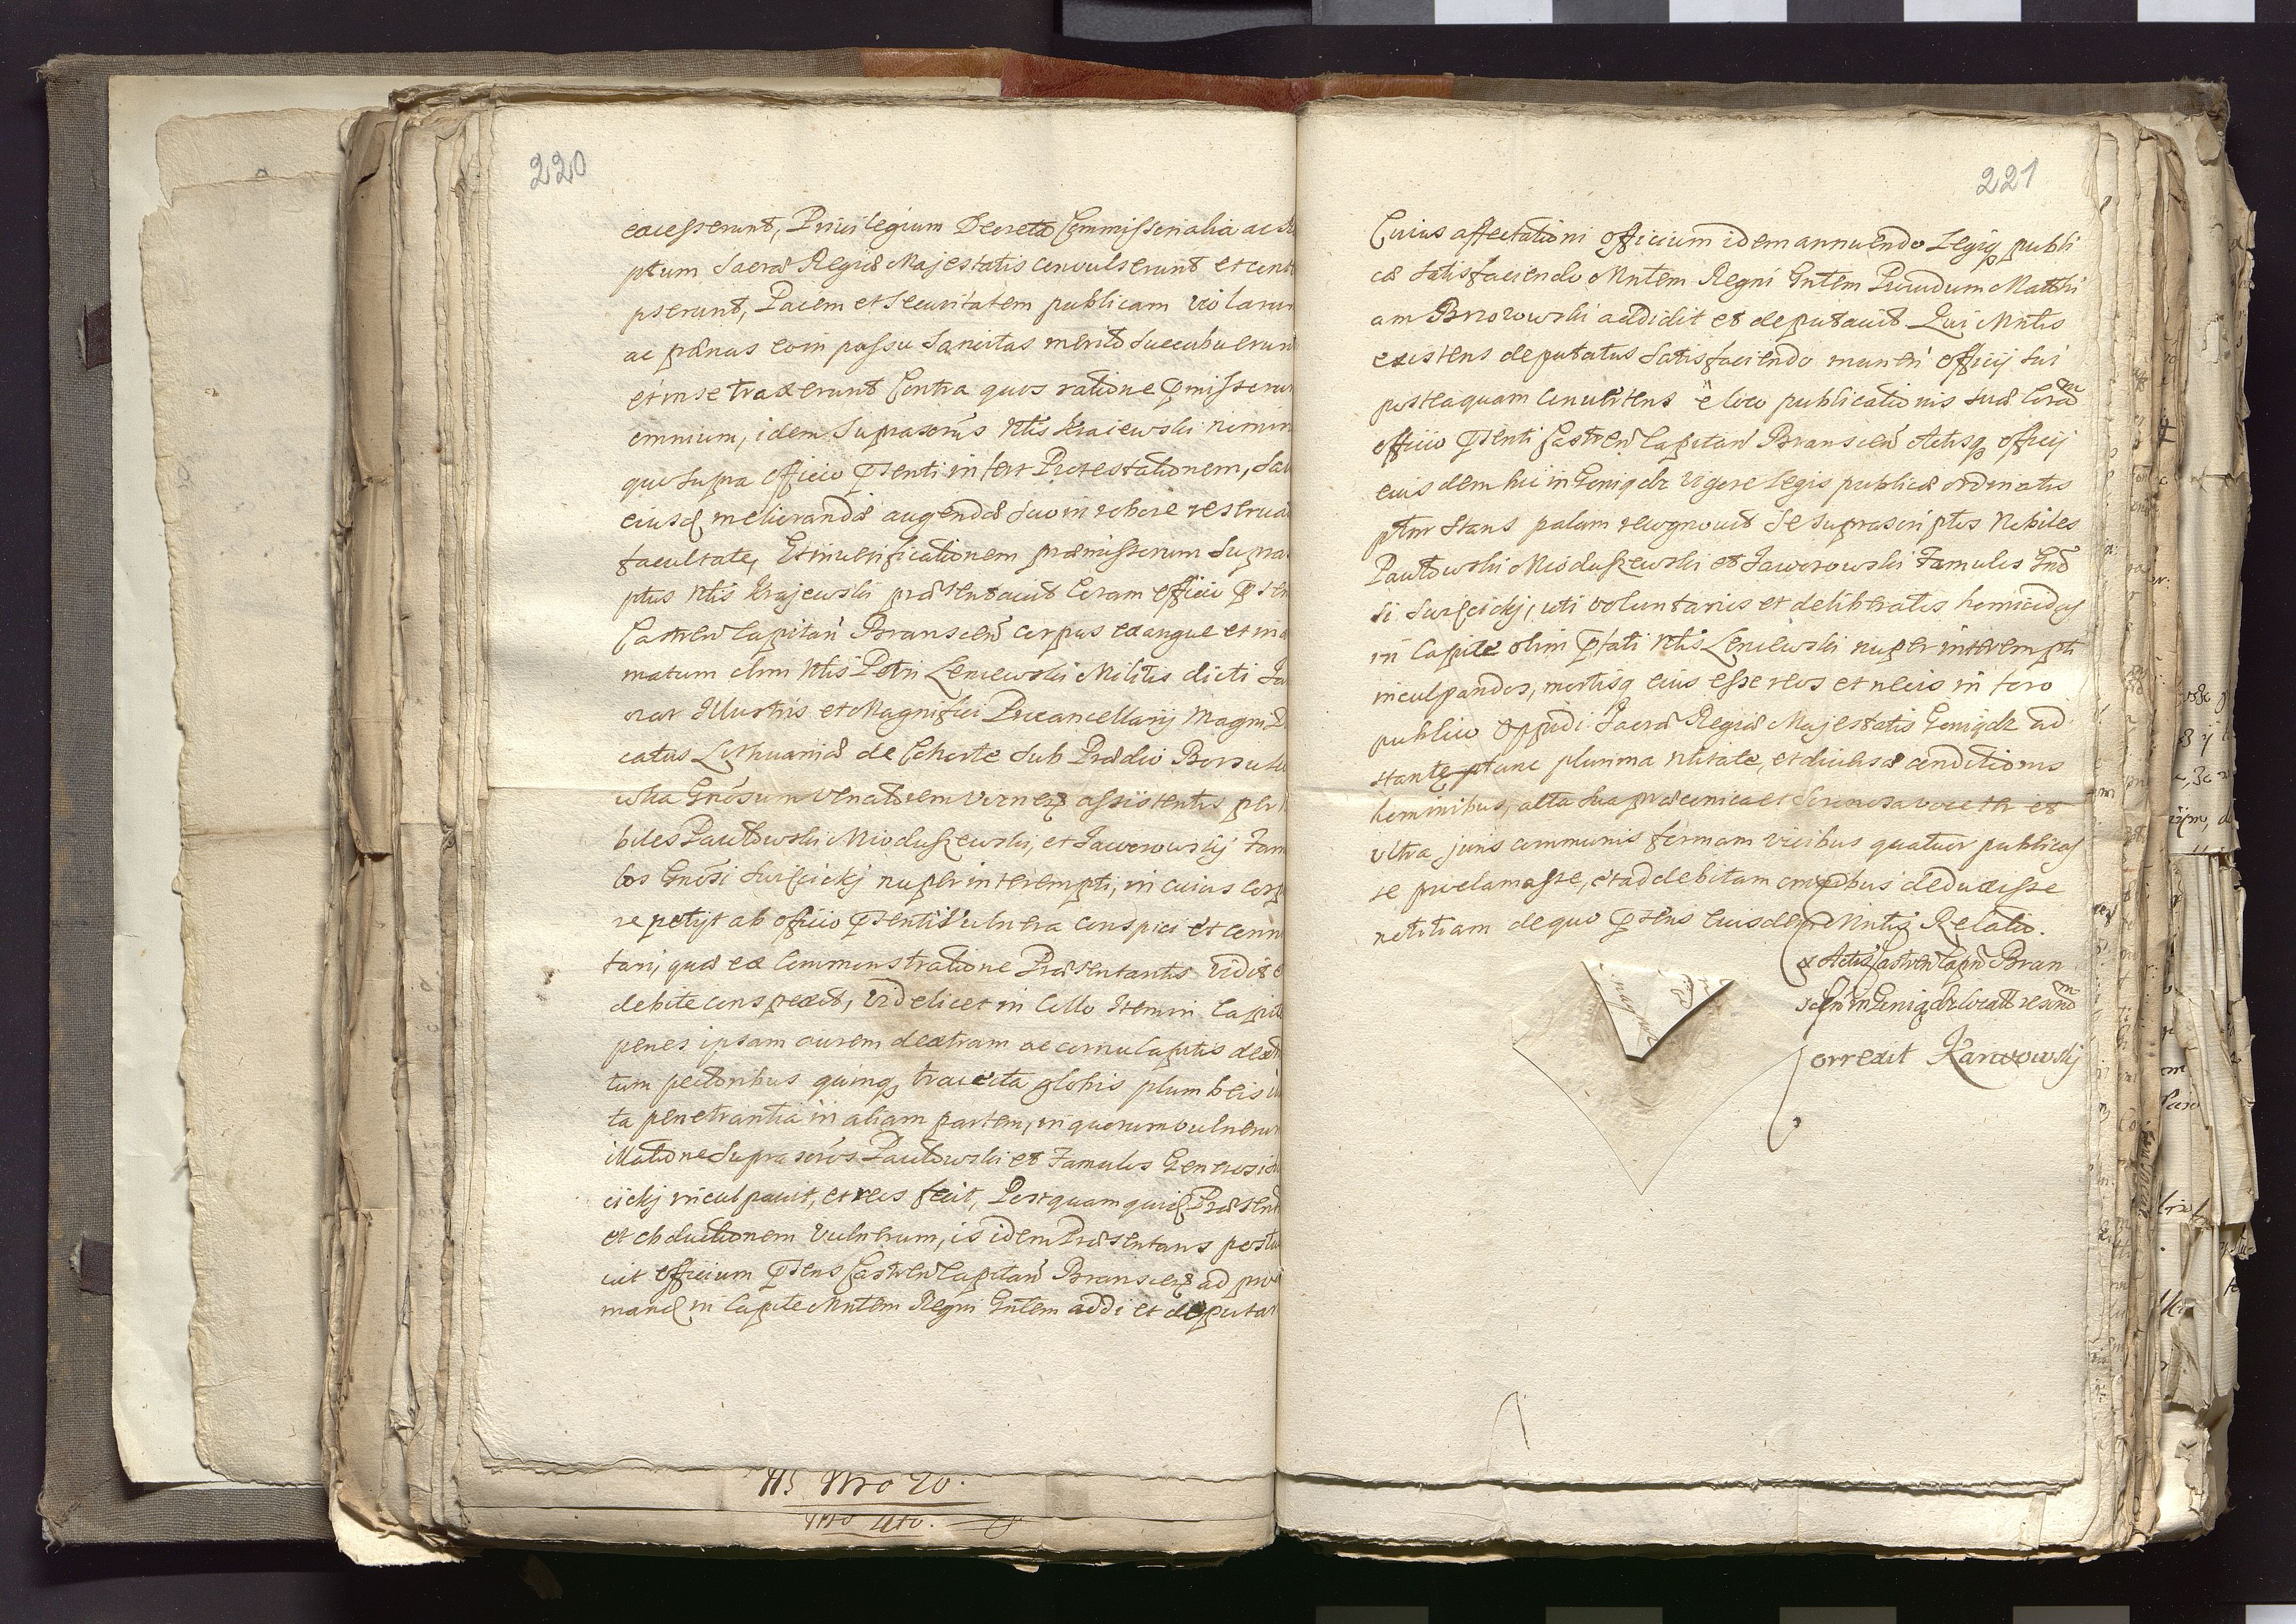 220
excesserunt, Privilegium Decreta Commissorialia ac
ptum Sacræ Regiæ Majestatis convulserunt et cont
pserunt, Pacem et Securitatem publicam violarun
ac pænas eo in passu Sancitas merito Succubuerunt
et in se traxerunt Contra quos ratione pmissorum
omnium, idem Suprascrus Nlis Kraiewski nomin
quo supra officio psenti infert Protestationem, Sal
eiusq meliorandæ augendæ suo in robore reserua
facultate, Et in uerificationem præmissorum Supra
ptus Nlis Krajewski præsentauit Coram officio psen
Castren Capitan Branscen corpus exangue et in
matum olim Nlis Petri Leniewski Militis dicti
orar Illustris et Magnifici Procancellarij Magni D
catus Lithuaniæ de Cohorte Sub Prædio
Gnosum Venatorem assistentis per
biles Pawłowski Mioduszewski, et Jaworowskj Fam
los Gnosi Surzickj nuper interempti, in cuius corp
re petijt ab officio psenti Vulnera conspici et conn
tari, quæ ex Commonstratione Præsentantis vidit e
debite conspexit, videlicet in Collo Item in Capit
penes ipsam aurem dextram ac cornu Capitis dext
tum pectoribus quinq traiecta globis plumbeis
ta penetrantia in aliam partem, in quorum vulnerum
illatione Suprascros Pawłowski et Famulos Generosi
cickj inculpauit, et reos fecit, Postquam quid Præsent
et obductionem Vulnerum, is idem Præsentans postu
uit officium psens Castren Capitan Branscen ad pro
mand in Capite Mntem Regni Gntem addi et deputa
Hs Nro 20.
221
Cuius affectationi officium idem annuendo Legiq publi
cæ Satisfaciendo Mntem Regni Gntem Prouidum Matthi
am Brzozowski addidit et deputauit Qui Mntis
existens deputatus Satisfaciendo muneri officij Sui
posteaquam conuertens è loco publicationis suæ Coram
officio psenti Castren Capitan Branscen Actisq officij
eiusdem hic in Goniądz vigore legis publicæ ordinatis
pltr Stans palam recognouit Se suprascriptos Nobiles
Pawłowski Mioduszewski et Jaworowski Famulos Gno
si Surzickj, uti voluntarios et deliberatos homicidas
in Capite olim pfati Nlis Leniewski nuper interempti
inculpandos, mortisq eius esse reos et necis in foro
publico Oppidi Sacræ Regiæ Majestatis Goniądz ad
stante tunc plurima Nlitate, et diuersæ conditionis
hominibus, alta sua præconica et Sonorosa voce et
vltra juris communis formam vicibus quatuor publicas
se proclamasse, et ad debitam omnibus deduxisse
notitiam de quo psens eiusdem Mntis Relatio.
Ex Actis Castren Capn Bran
scen in Goniądz locat
Correxit Karwowskj